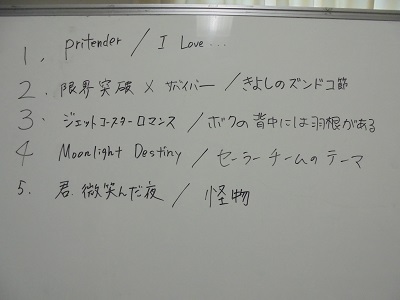 1. pritender / I Love...
2. 限界突破 × サバイバー / きよしのズンドコ節
3. ジェットコースターロマンス / ボクの背中には羽根がある
4 Moonlight Destiny / セーラーチームのテーマ
5. 君 微笑んだ夜 / 怪物